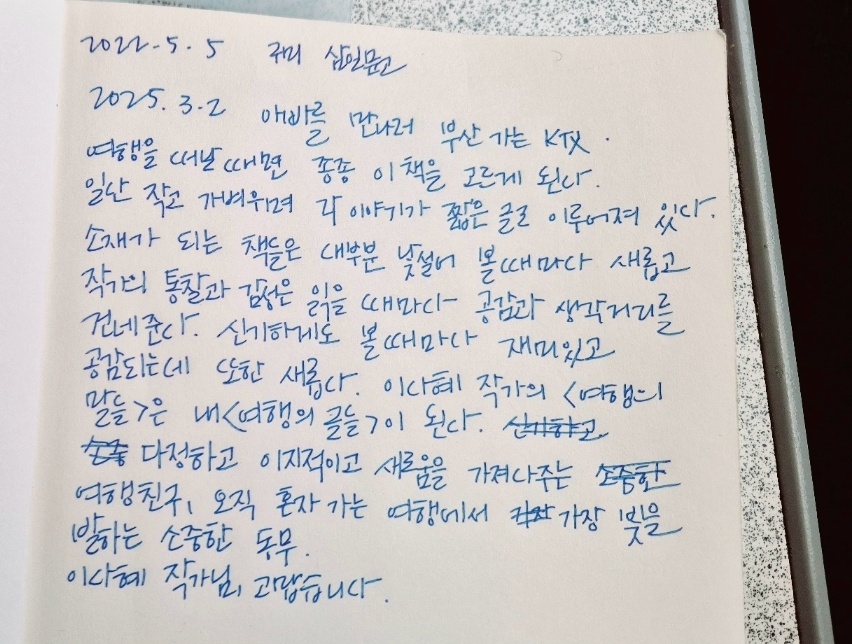 2022. 5. 5 구미 삼일문고
2025. 3. 2 아빠를 만나러 부산 가는 KTX.
여행을 떠날 때면 종종 이 책을 고르게 된다.
일단 작고 가벼우며 각 이야기가 짧은 글로 이루어져 있다.
소재가 되는 책들은 대부분 낯설어 볼 때마다 새롭고
작가의 통찰과 감성은 읽을 때마다 공감과 생각거리를
건네준다. 신기하게도 볼 때마다 재미있고
공감되는데 또한 새롭다. 이다혜 작가의 <여행의
말들>은 내 <여행의 글들>이 된다. 신기하고
소중 다정하고 이지적이고 새로움을 가져다주는 소중한
여행친구, 오직 혼자 가는 여행에서 가장 빛을
발하는 소중한 동무.
이다혜 작가님, 고맙습니다.